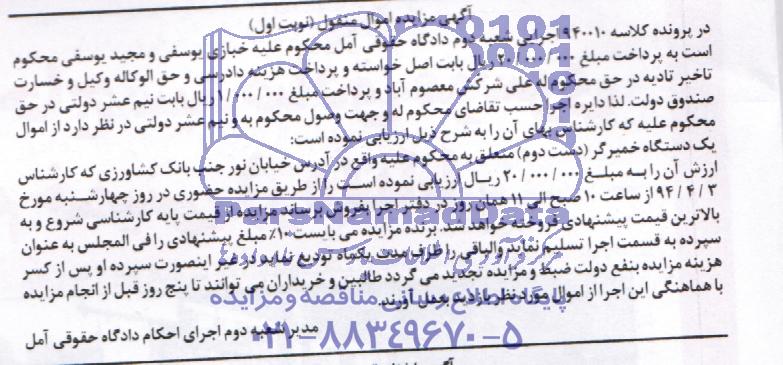 آگهی مزایده اموال منقول (نوبت اول)
در پرونده کلاسه ۹۴۰۰۱۰ اجرایی شعبه دوم دادگاه حقوقی آمل محکوم علیه خبازی یوسفی و مجید یوسفی محکوم
است به پرداخت مبلغ ۲۰/۰۰۰/۰۰۰ ریال بابت اصل خواسته و پرداخت هزینه دادرسی و حق الوکاله وکیل و خسارت
تاخیر تادیه در حق محکوم له علی شرکش معصوم آباد و پرداخت مبلغ ۱/۰۰۰/۰۰۰ ریال بابت نیم عشر دولتی در حق
صندوق دولت. لذا دایره اجرا حسب تقاضای محکوم له و جهت وصول محکوم به و نیم عشر دولتی در نظر دارد از اموال
محکوم علیه که کارشناس بهای آن را به شرح ذیل ارزیابی نموده است:
یک دستگاه خمیر گر (دست دوم) متعلق به محکوم علیه واقع در آدرس خیابان نور جنب بانک کشاورزی که کارشناس
ارزش آن را به مبلغ ۲۰/۰۰۰/۰۰۰ ریال ارزیابی نموده است را از طریق مزایده حضوری در روز چهارشنبه مورخ
۹۴/۴/۳ از ساعت ۱۰ صبح الی ۱۱ همان روز در دفتر اجرا بفروش برساند مزایده از قیمت پایه کارشناسی شروع و به
بالاترین قیمت پیشنهادی فروخته خواهد شد. برنده مزایده می بایست ۱۰٪ مبلغ پیشنهادی را فی المجلس به عنوان
سپرده به قسمت اجرا تسلیم نماید و الباقی را ظرف مدت یکماه تودیع نماید در غیر اینصورت سپرده او پس از کسر
هزینه مزایده بنفع دولت ضبط و مزایده تجدید می گردد طالبین و خریداران می توانند تا پنج روز قبل از انجام مزایده
با هماهنگی این اجرا از اموال مورد نظر بازدید بعمل آورند.
مدیر شعبه دوم اجرای احکام دادگاه حقوقی آمل
ParsNamadData
پایگاه اطلاع رسانی مناقصه و مزایده
۰۲۱-۸۸۳۴۹۶۷۰-۵